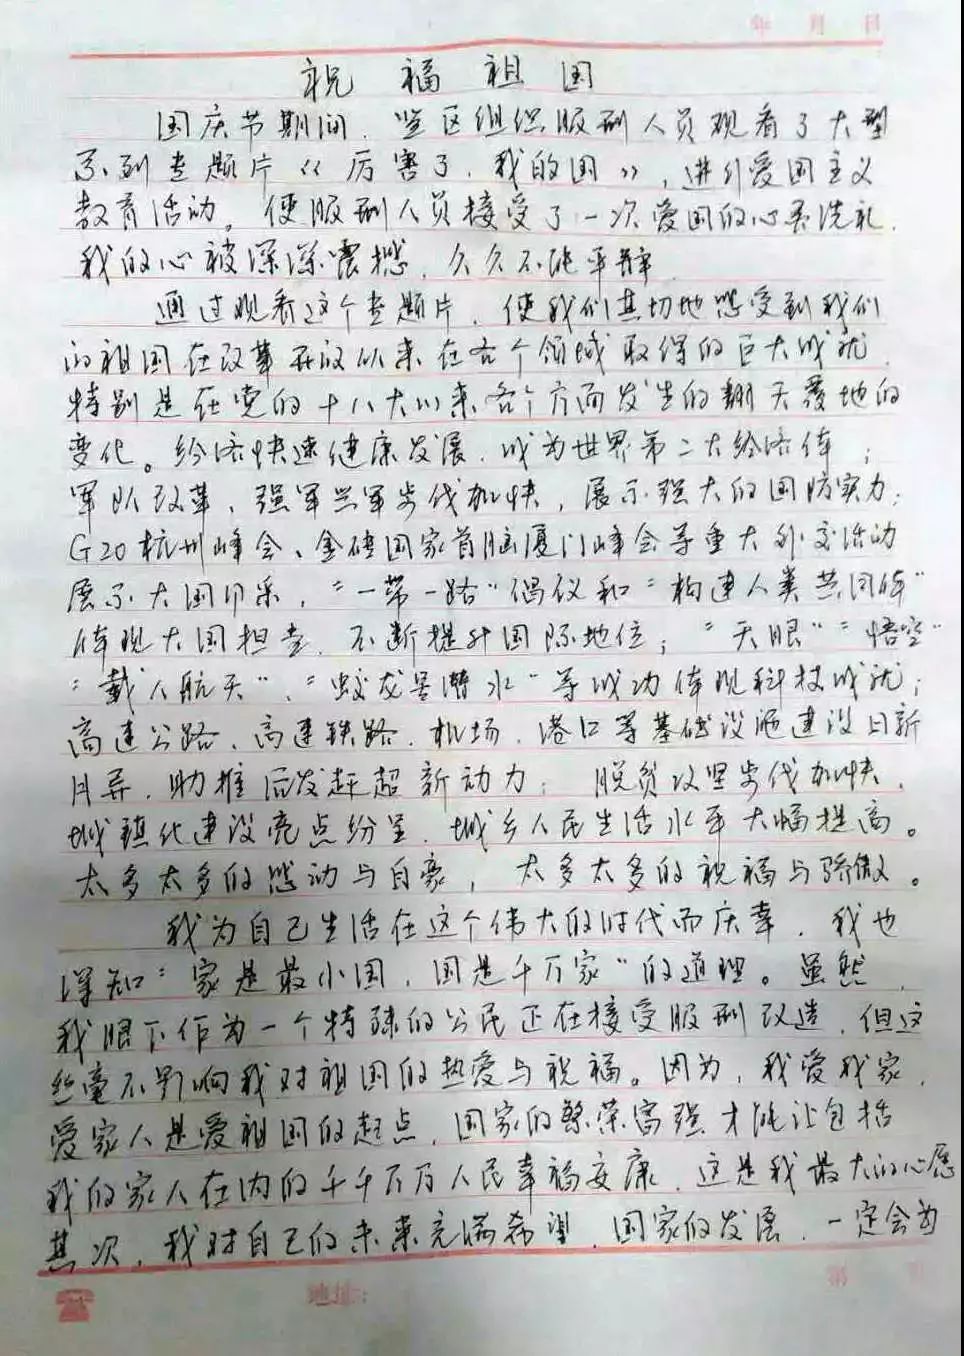 年 月 日
祝福祖国
国庆节期间，监区组织服刑人员观看了大型
系列专题片《厉害了，我的国》，进行爱国主义
教育活动。使服刑人员接受了一次爱国的心灵洗礼，
我的心被深深震撼，久久不能平静。
通过观看这个专题片，使我们真切地感受到我们
的祖国在改革开放以来在各个领域取得的巨大成就，
特别是在党的十八大以来各个方面发生的翻天覆地的
变化。经济快速健康发展，成为世界第二大经济体；
军队改革、强军兴军步伐加快，展示强大的国防实力；
G20杭州峰会、金砖国家首脑厦门峰会等重大外交活动
展示大国风采，“一带一路”倡议和“构建人类共同体”
体现大国担当，不断提升国际地位；“天眼”“悟空”
“载人航天”、“蛟龙号潜水”等成功体现科技成就；
高速公路、高速铁路、机场、港口等基础设施建设日新
月异，助推后发赶超新动力；脱贫攻坚步伐加快，
城镇化建设亮点纷呈，城乡人民生活水平大幅提高。
太多太多的感动与自豪，太多太多的祝福与骄傲。
我为自己生活在这个伟大的时代而庆幸，我也
深知“家是最小国，国是千万家”的道理。虽然，
我眼下作为一个特殊的公民正在接受服刑改造，但这
丝毫不影响我对祖国的热爱与祝福。因为，我爱我家，
爱家人是爱祖国的起点，国家的繁荣富强才能让包括
我的家人在内的千千万万人民幸福安康，这是我最大的心愿
其次，我对自己的未来充满希望，国家的发展，一定会为
地址： 第